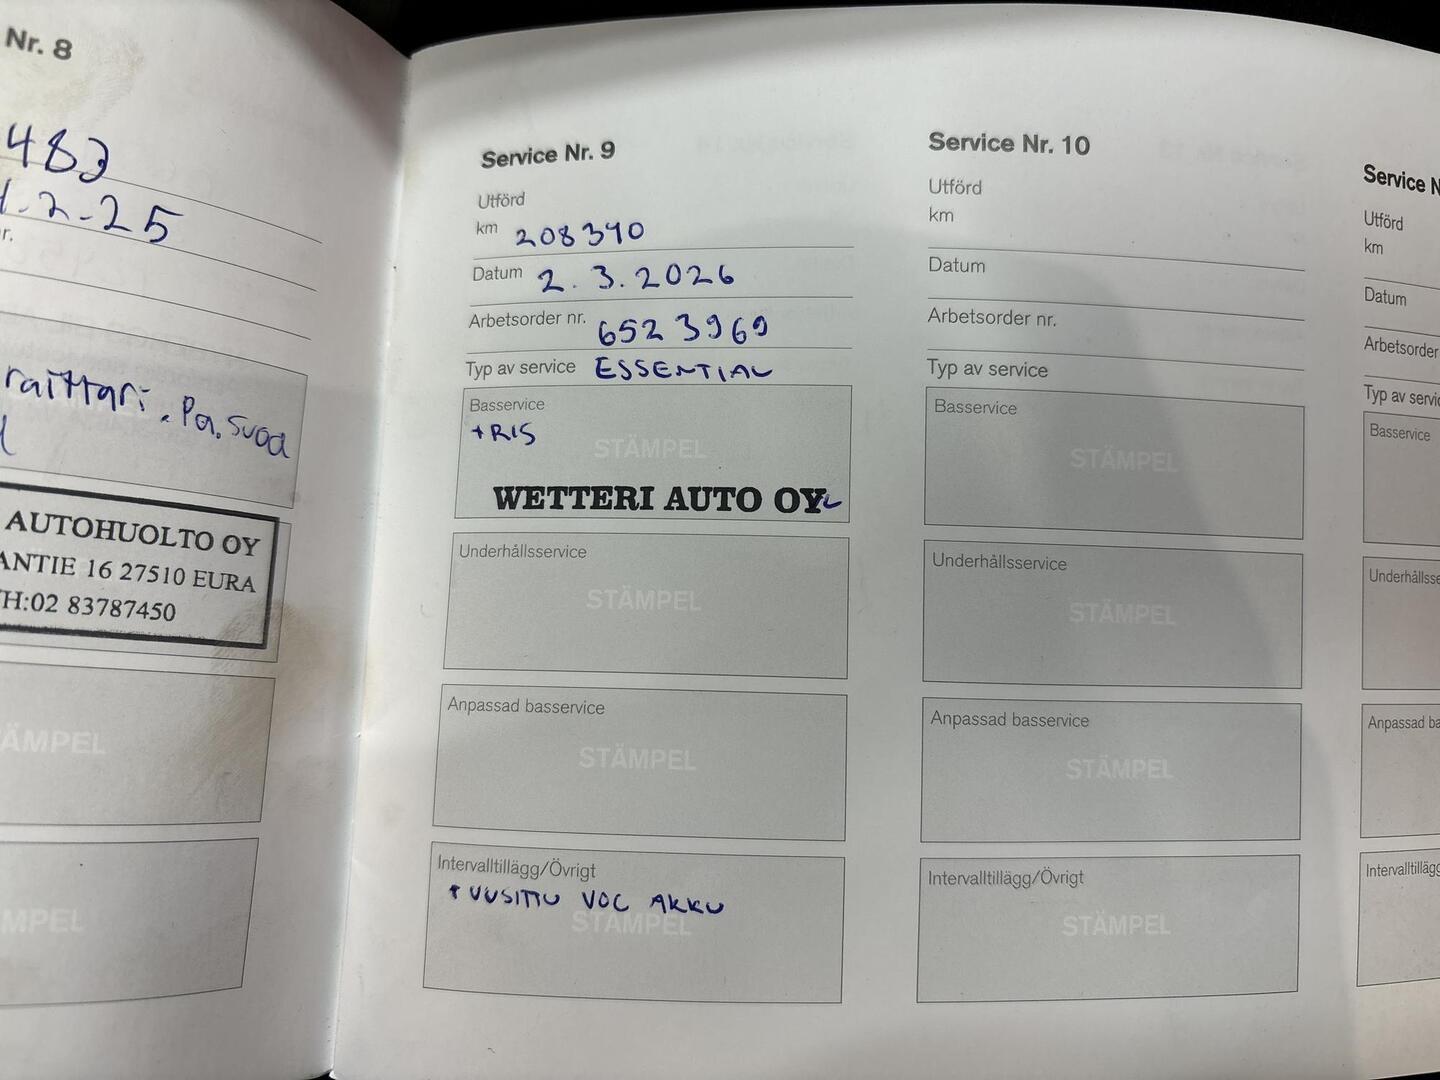 Nr. 8
483
.2-25
raittari. Pa. suod
AUTOHUOLTO OY
ANTIE 16 27510 EURA
H:02 83787450
STÄMPEL
STÄMPEL
Service Nr. 9
Utförd
km 208340
Datum 2.3.2026
Arbetsorder nr. 6523969
Typ av service ESSENTIAL
Basservice
+RIS
STÄMPEL
WETTERI AUTO OY
Underhållsservice
STÄMPEL
Anpassad basservice
STÄMPEL
Intervalltillägg/Övrigt
+ UUSITTU VOC AKKU
STÄMPEL
Service Nr. 10
Utförd
km
Datum
Arbetsorder nr.
Typ av service
Basservice
STÄMPEL
Underhållsservice
STÄMPEL
Anpassad basservice
STÄMPEL
Intervalltillägg/Övrigt
STÄMPEL
Service N
Utförd
km
Datum
Arbetsorder
Typ av servic
Basservice
Underhållsse
Anpassad ba
Intervalltillägg